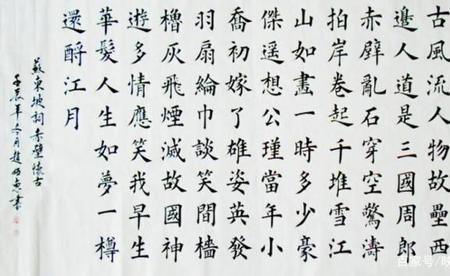 古風流人物故壘西
邊人道是三國周郎
赤壁亂石穿空驚濤
拍岸卷起千堆雪江
山如畫一時多少豪
傑遥想公瑾當年小
喬初嫁了雄姿英發
羽扇綸巾談笑間檣
櫓灰飛煙滅故國神
遊多情應笑我早生
華髮人生如夢一樽
還酹江月
蘇東坡詞赤壁懷古
壬辰年冬月趙書
百家号/